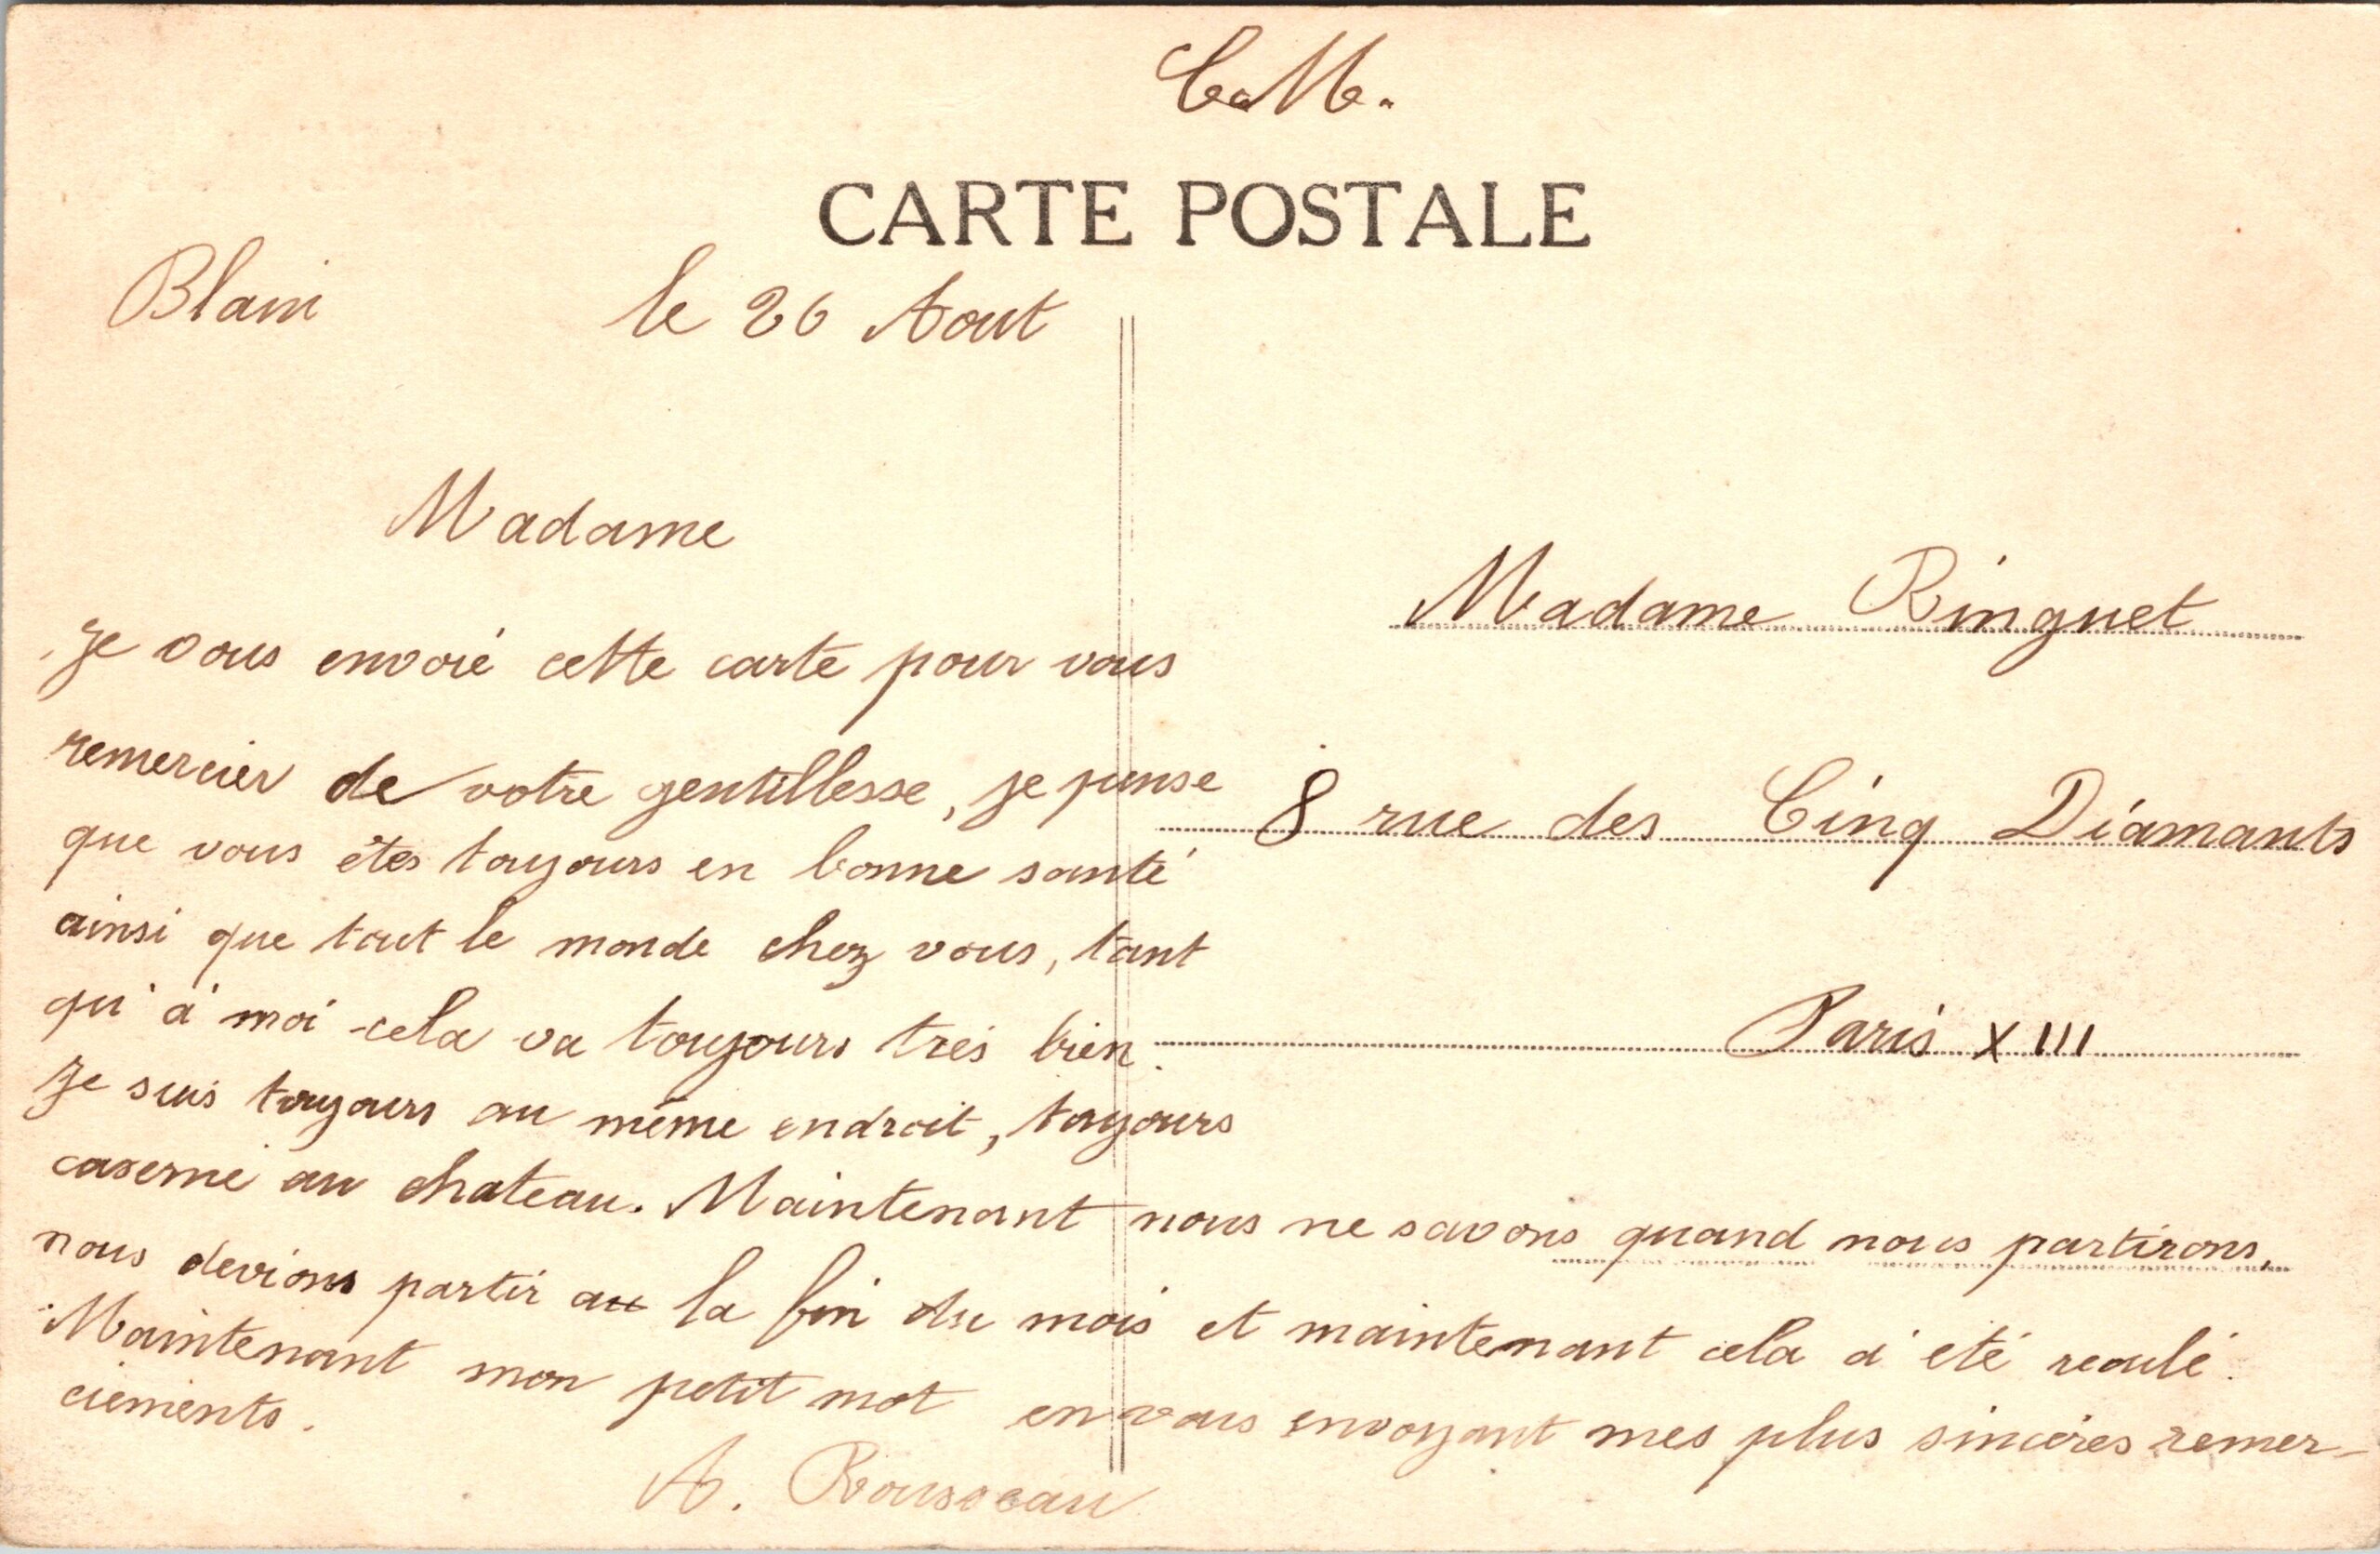 C. M.
CARTE POSTALE
Blain le 26 Aout
Madame
Je vous envoié cette carte pour vous
remercier de votre gentillesse, je pense
que vous êtes toujours en bonne santé
ainsi que tout le monde chez vous, tant
qu'à moi cela va toujours très bien.
Je suis toujours au même endroit, toujours
caserné au chateau. Maintenant nous ne savons quand nous partirons,
nous devions partir au la fin du mois et maintenant cela à été reculé.
Maintenant mon petit mot en vous envoyant mes plus sincères remer-
ciements.
A. Rousseau
Madame Ringuet
8 rue des Cinq Diamants
Paris XIII